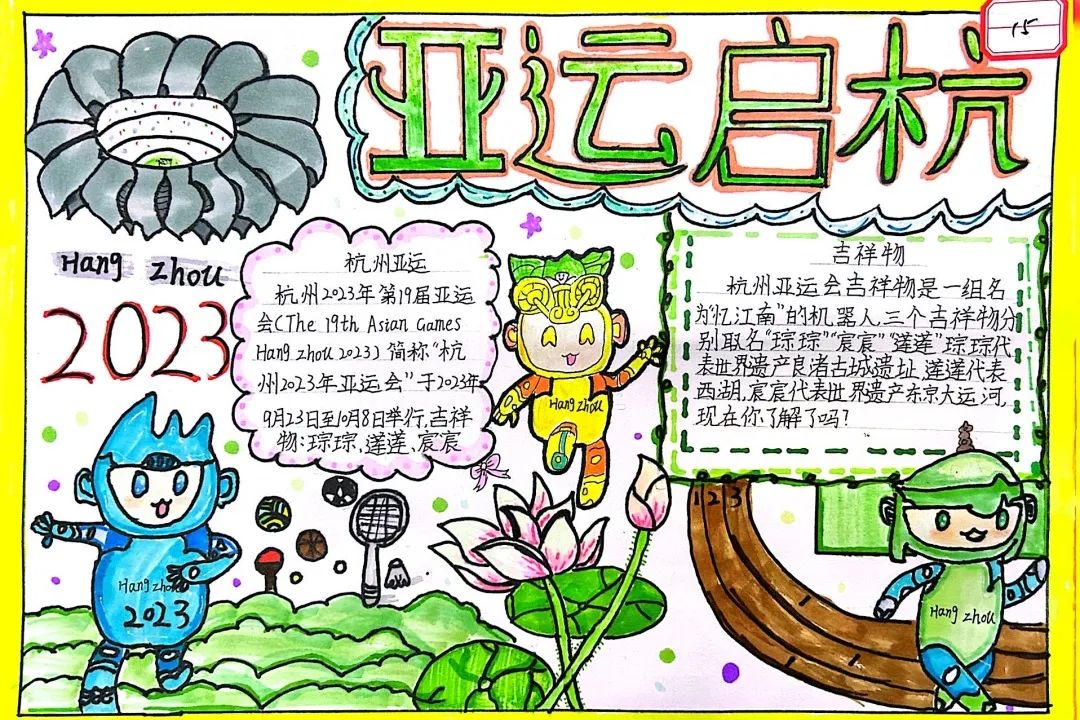 15
亚运启杭
Hang zhou
2023
杭州亚运
杭州2023年第19届亚运
会(The 19th Asian Games
Hang zhou 2023)简称“杭
州2023年亚运会”于2023年
9月23日至10月8日举行,吉祥
物:琮琮、莲莲、宸宸
吉祥物
杭州亚运会吉祥物是一组名
为“忆江南”的机器人,三个吉祥物分
别取名“琮琮”“宸宸”“莲莲”琮琮代
表世界遗产良渚古城遗址,莲莲代表
西湖,宸宸代表世界遗产东京大运河,
现在你了解了吗?
Hang zhou
Hang zhou
2023
1 2 3
Hang zhou